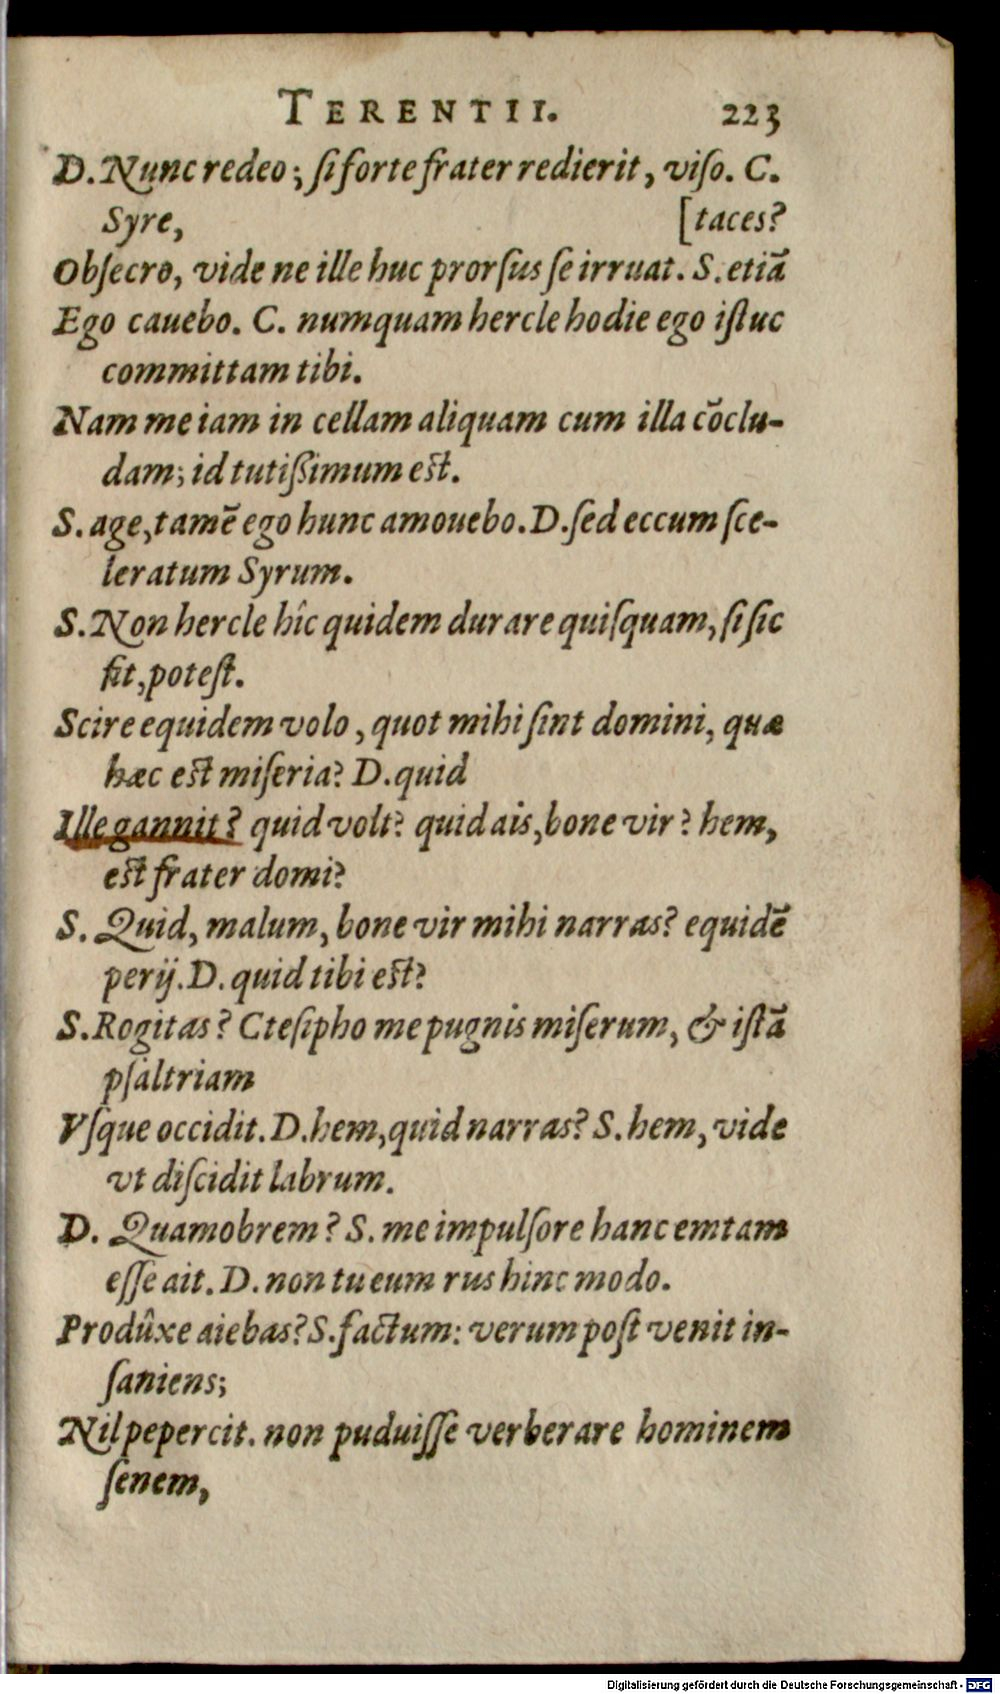 TERENTII. 223
D. Nunc redeo; ſi forte frater redierit, viſo. C.
Syre, [taces?
Obſecro, vide ne ille huc prorſus ſe irruat. S. etiā
Ego cauebo. C. numquam hercle hodie ego iſtuc
committam tibi.
Nam me iam in cellam aliquam cum illa cōclu-
dam; id tutißimum eſt.
S. age, tamē ego hunc amouebo. D. ſed eccum ſce-
leratum Syrum.
S. Non hercle hîc quidem durare quiſquam, ſi ſic
fit, poteſt.
Scire equidem volo, quot mihi ſint domini, quæ
hæc eſt miſeria? D. quid
Ille gannit? quid volt? quid ais, bone vir? hem,
eſt frater domi?
S. Quid, malum, bone vir mihi narras? equidē
perij. D. quid tibi eſt?
S. Rogitas? Cteſipho me pugnis miſerum, & iſtā
pſaltriam
Vſque occidit. D. hem, quid narras? S. hem, vide
vt diſcidit labrum.
D. Quamobrem? S. me impulſore hanc emtam
eſſe ait. D. non tu eum rus hinc modo.
Prodûxe aiebas? S. factum: verum poſt venit in-
ſaniens;
Nil pepercit. non puduiſſe verberare hominem
ſenem,
Digitalisierung gefördert durch die Deutsche Forschungsgemeinschaft - DFG